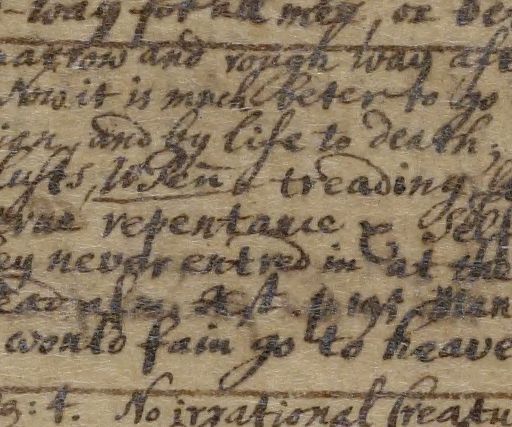 way for all men, or be
narrow and rough way aft
Now it is much beter to go
and by life to death;
lusts, when treading
true repentance & self
ey never entred in at the
man
would fain go to heave
3: 4. No irrational Creatu